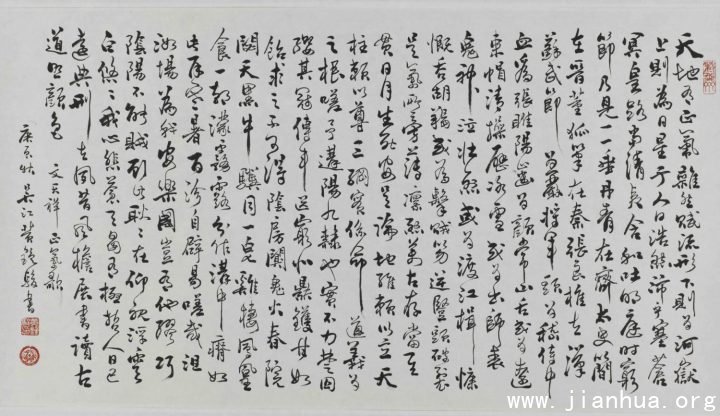 天地有正氣雜然賦流形下則為河嶽
上則為日星于人曰浩然沛乎塞蒼
冥皇路當清夷含和吐明庭時窮
節乃見一一垂丹青在齊太史簡
在晉董狐筆在秦張良椎在漢
蘇武節為嚴將軍頭為嵇侍中
血為張睢陽齒為顏常山舌或為遼
東帽清操厲冰雪或為出師表
鬼神泣壯烈或為渡江楫慷
慨吞胡羯或為擊賊笏逆豎頭破裂
是氣所旁薄凜烈萬古存當其
貫日月生死安足論地維賴以立天
柱賴以尊三綱實係命道義為
之根嗟予遘陽九隸也實不力楚囚
纓其冠傳車送窮北鼎鑊甘如
飴求之不可得陰房闃鬼火春院
閟天黑牛驥同一皂雞棲鳳凰
食一朝濛霧露分作溝中瘠如
此再寒暑百沴自辟易嗟哉沮
洳場為我安樂國豈有他繆巧
陰陽不能賊顧此耿耿在仰視浮雲
白悠悠我心悲蒼天曷有極哲人日已
遠典刑在夙昔風檐展書讀古
道照顏色
文天祥 正氣歌
吳江黃書
www.jianhua.org